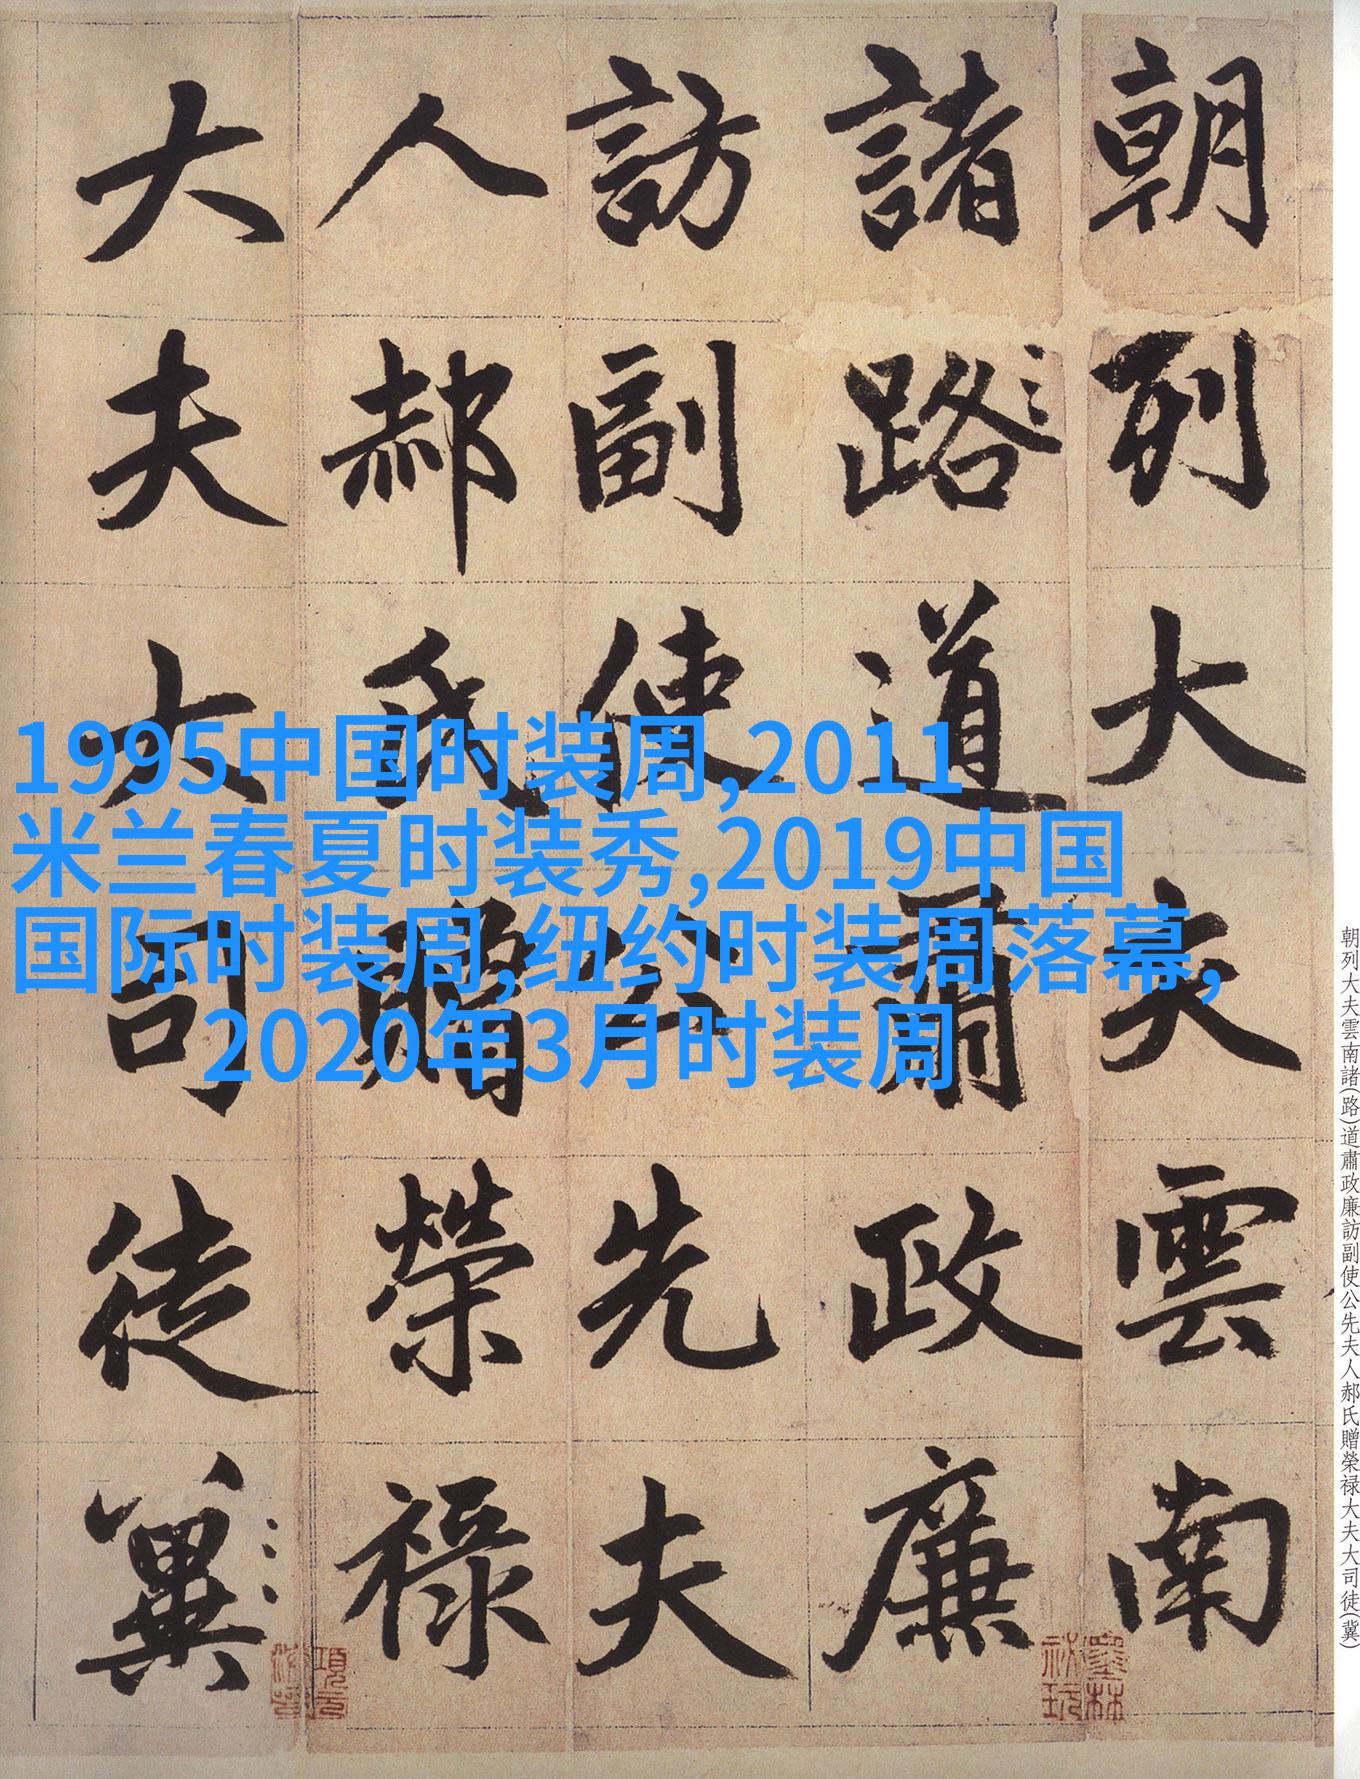 朝列大夫雲南
諸路道肅政廉
訪副使公先夫
人郝氏贈榮禄
大夫大司徒冀
1995中国时装周,2011
米兰春夏时装秀,2019中国
国际时装周,纽约时装周落幕,
2020年3月时装周
朝列大夫雲南諸(路)道肅政廉訪副使公先夫人郝氏贈榮禄大夫大司徒(冀)